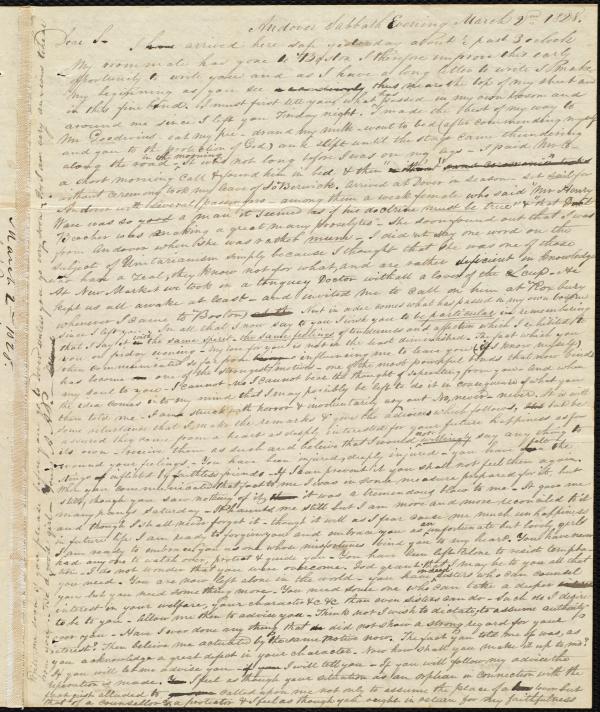 Andover Sabbath Evening March 2nd 1828.
Dear S— I arrived here safe yesterday about ½ past 3 oclock
My room mate has gone to Boston I therefore improve this early
opportunity to write you and as I have a long letter to write I make
my beginning as you see thus, near the top of my sheet and
in this fine hand. I must first tell you what has passed in my own person and
around me since I left you Friday night. I made the best of my way to
Mr Goodwins eat my pie - drank my milk - went to bed (after commending myself
and you to the protection of God) and slept until the stage came thundering
along the road - It was not long before I was on my legs - I paid Mr G-
in the morning
a short morning call & found him in bed, & then
without ceremony took my leave of So Berwick. Arrived at Dover in season - set sail for
Andover with several passengers - among them a weak female who said "Mr Henry
Ware was so good a man it seemed as if his doctrine must be true & that
Beecher was making a great many proselytes". She soon found out that I was
from Andover when she was rather mum - I did not say one word on the
subject of Unitarianism simply because I thought that she was one of those
who have a zeal, they know not for what, and are rather deficient in knowledge
At New Market we took in a tonguey Doctor withall a love of the cup - He
kept us all awake at least - and invited me to call on him at Roxbury
whenever I came to Boston. Next in order comes what has passed in my own
since I left you. In all that I now say to you I wish you to be particular in remembering
that I say it with the same spirit - the same feelings of tenderness and affection which I exhibited to
you on friday evening - my love for you is not in the least diminished. The fact which you
then communicated so far from influencing me to leave you (if I know myself)
has become of the strongest motives - one of the most powerful bonds that now binds
my soul to yours. I cannot no I cannot bear the thought of separating from you and when
the idea comes into my mind that I may possibly be left to do it in consequence of what you
have told me I am struck with horror & involuntarily cry out No, never - never. It is with
some reluctance that I make the remarks & give the advice which follows, but be
assured they come from a heart as deeply interested for your future happiness as for
its own - receive them as such and believe that I would not willingly say any thing to
wound your feelings - You have been injured, deeply injured - you have felt the
stings of neglect by faithless friends - If I can prevent it you shall not feel them again.
When you communicated that fact to me I was in some measure prepared for it, but
still, though you saw nothing of it, it was a tremendous blow to me - It gave me
many pangs saturday - It haunts me still but I am more and more reconciled to it
and though I shall never forget it - though it will as I fear cost me much unhappiness
in future life I am ready to forgive you and embrace you as an unfortunate but lovely girl
I am ready to embrace you as one whose misfortunes bind you to my heart. You have never
had any one to watch over, protect & guide you. You have been left alone to resist
I do not wonder that you were overcome. God grant that I may be to you all that
you need. You are now left alone in the world - you have indeed sisters who can counsel
you but you need something more - You need some one who can take a deeper
interest in your welfare, your character &c &c than even sisters can do - Such do I desire
to be to you - Allow me then to advise you. Think not I wish to dictate, to assume authority
over you - Have I ever done any thing that did not show a strong regard for your
interest? Then believe me actuated by the same motives now. The fact you told me of was, as
you acknowledge a great defect in your character. Now how shall you make it up to me?
If you will let me advise you I will tell you - If you will follow my advice the
reparation is made. I feel as though your situation as an orphan in connection with the
fact just alluded to called upon me not only to assume the place of a lover but
that of a counsellor & a protector & I feel as though you ought in return for my faithfulness
March 2 - 1828.